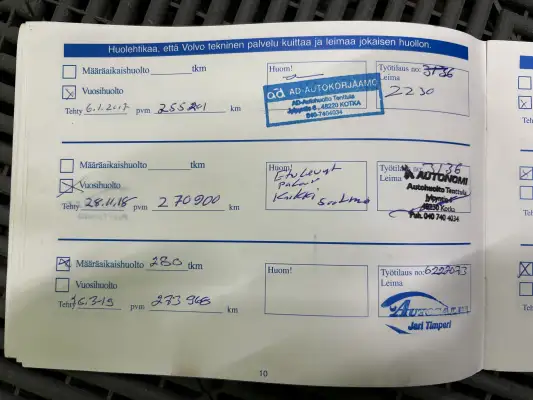 Huolehtikaa, että Volvo tekninen palvelu kuittaa ja leimaa jokaisen huollon.
Määräaikaishuolto tkm
Vuosihuolto
Tehty 6.1.2017 pvm 255201 km
Huom!
Työtilaus no: 3136
Leima
2230
ad AD-AUTOKORJAAMO
AD-Autohuolto Tenttula
48220 KOTKA
040-7404034
Määräaikaishuolto tkm
Vuosihuolto
Tehty 28.11.18 pvm 270900 km
Huom!
Kaikki
Työtilaus no: 3136
Leima
AUTONOMI
Autohuolto Tenttula
48220 Kotka
Puh. 040 740 4034
Määräaikaishuolto 280 tkm
Vuosihuolto
Tehty 26.3-19 pvm 273968 km
Huom!
Työtilaus no: 6227073
Leima
Jari Timperi
10